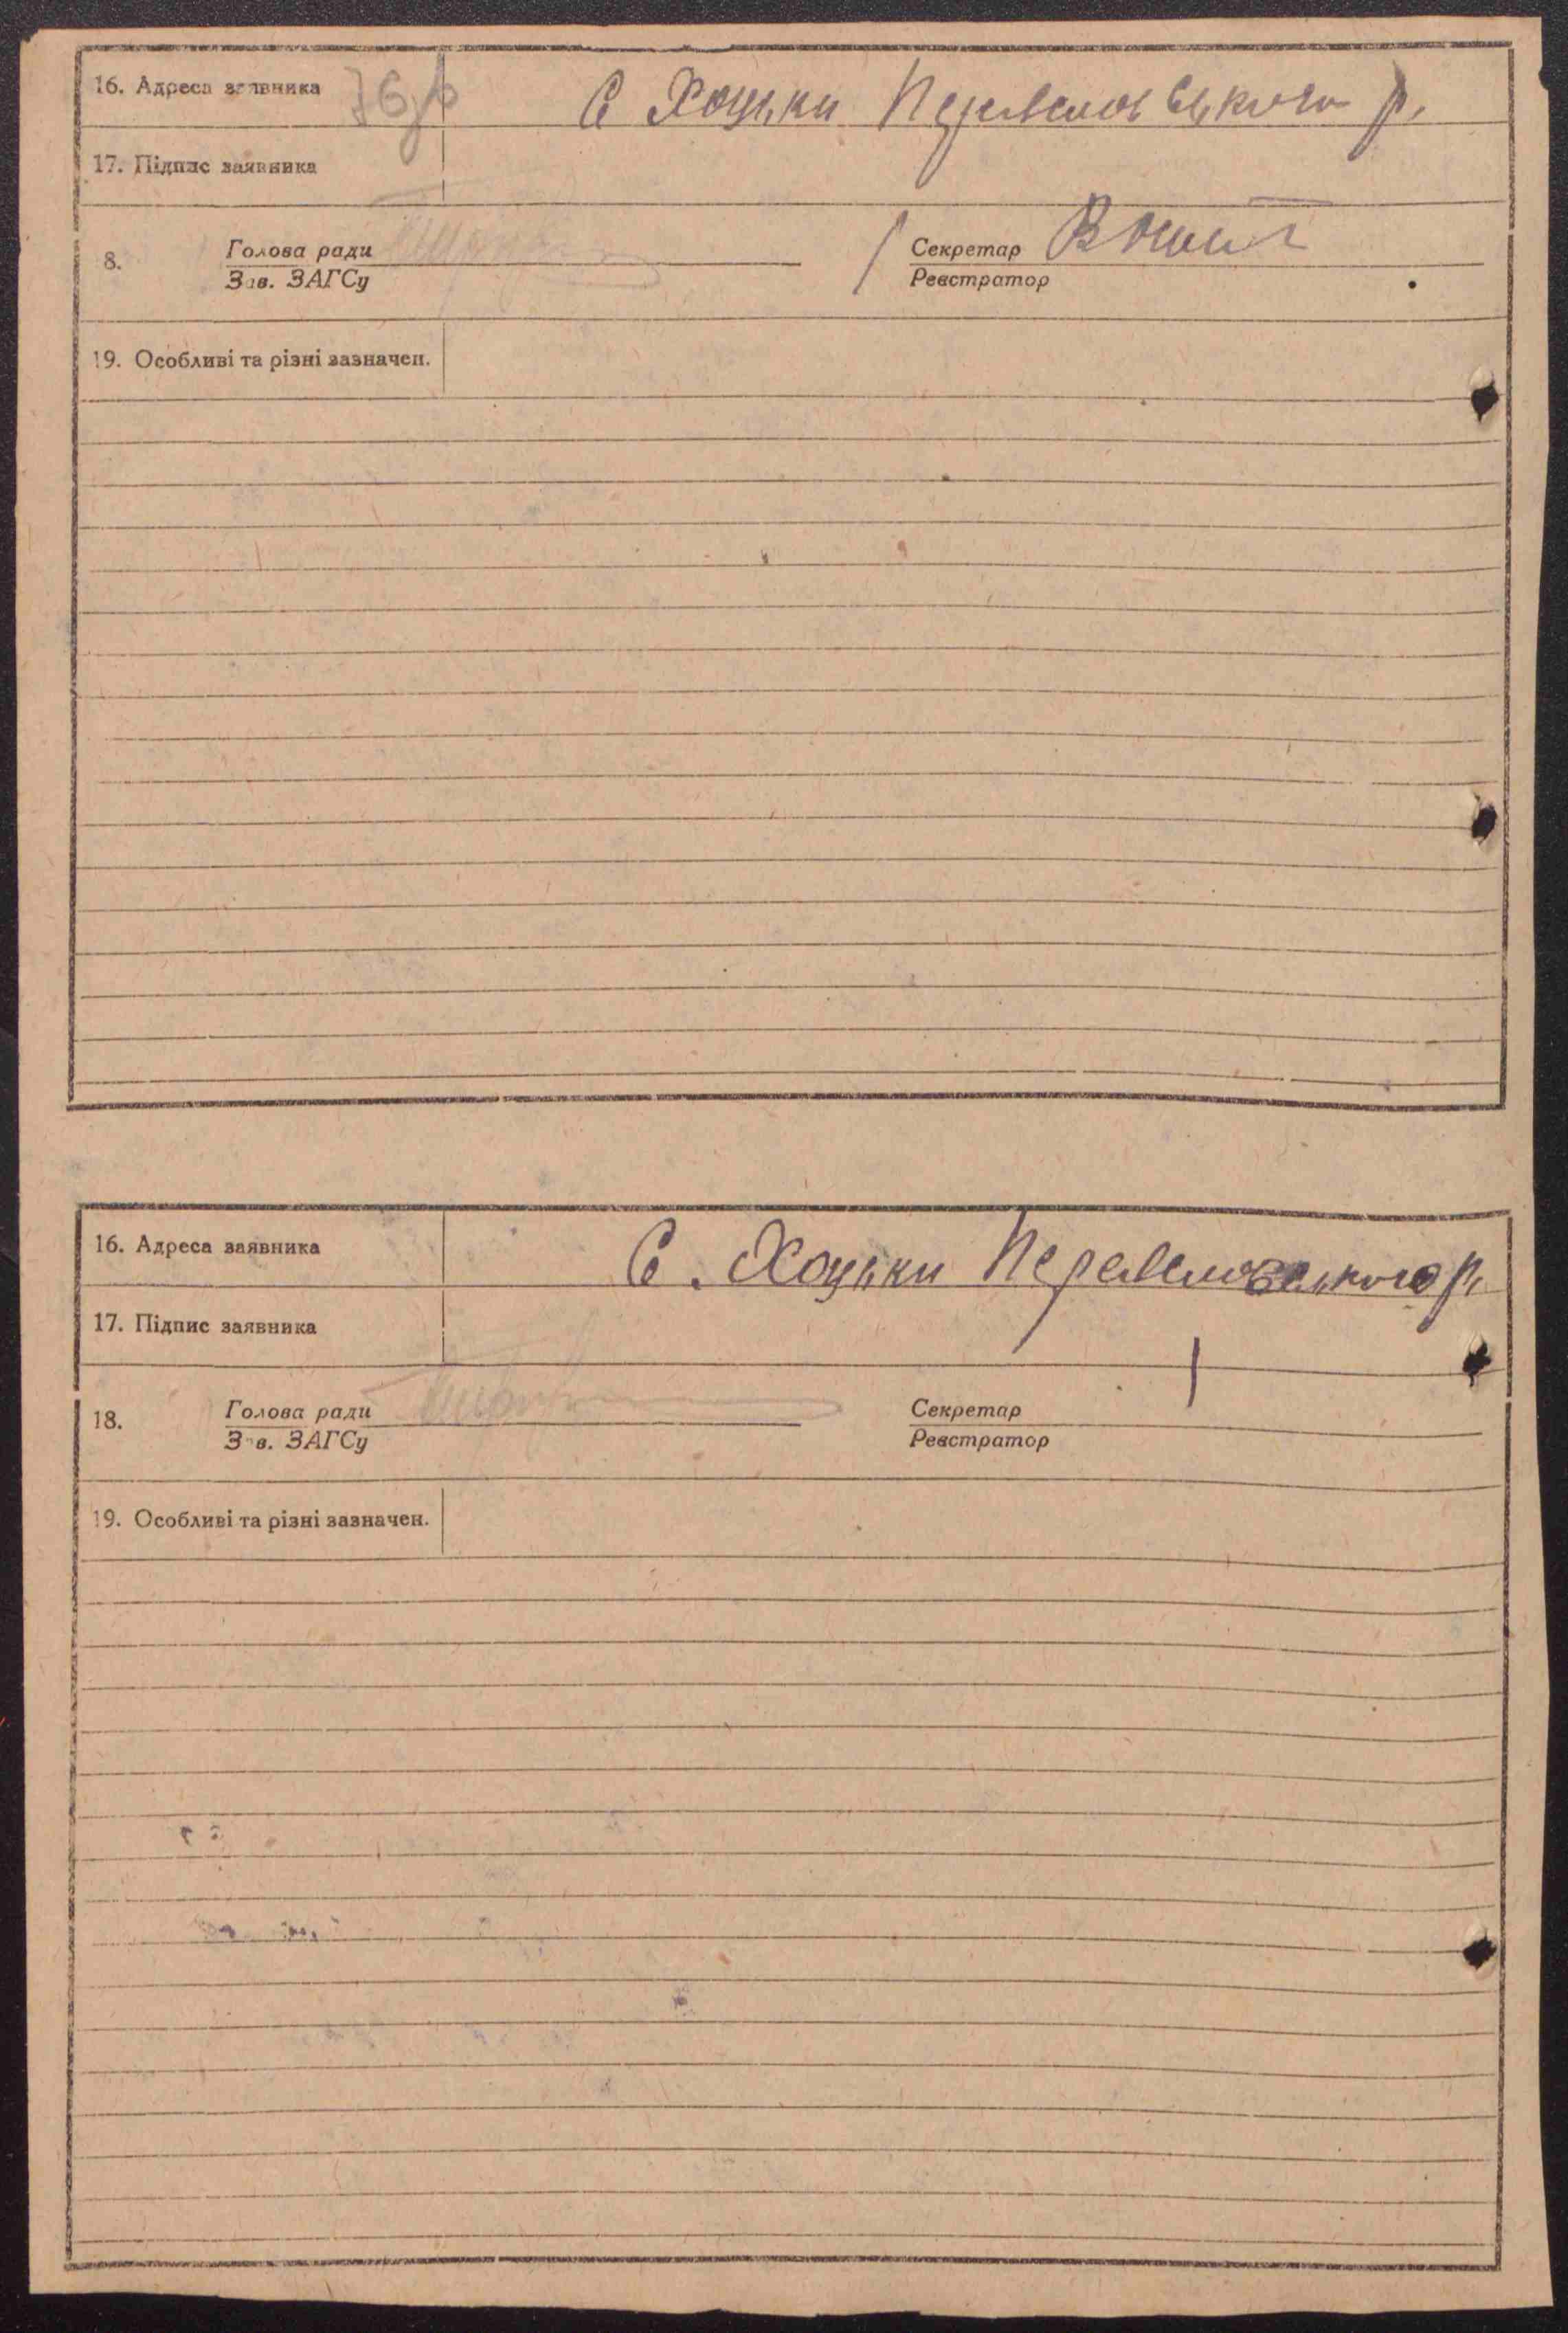 16. Адреса заявника С Хоцьки Переяславського р.
17. Підпис заявника
8. Голова ради Секретар
Зав. ЗАГСу Реєстратор
19. Особливі та різні зазначен.
16. Адреса заявника С. Хоцьки Переяславського р.
17. Підпис заявника
18. Голова ради Секретар
Зав. ЗАГСу Реєстратор
19. Особливі та різні зазначен.